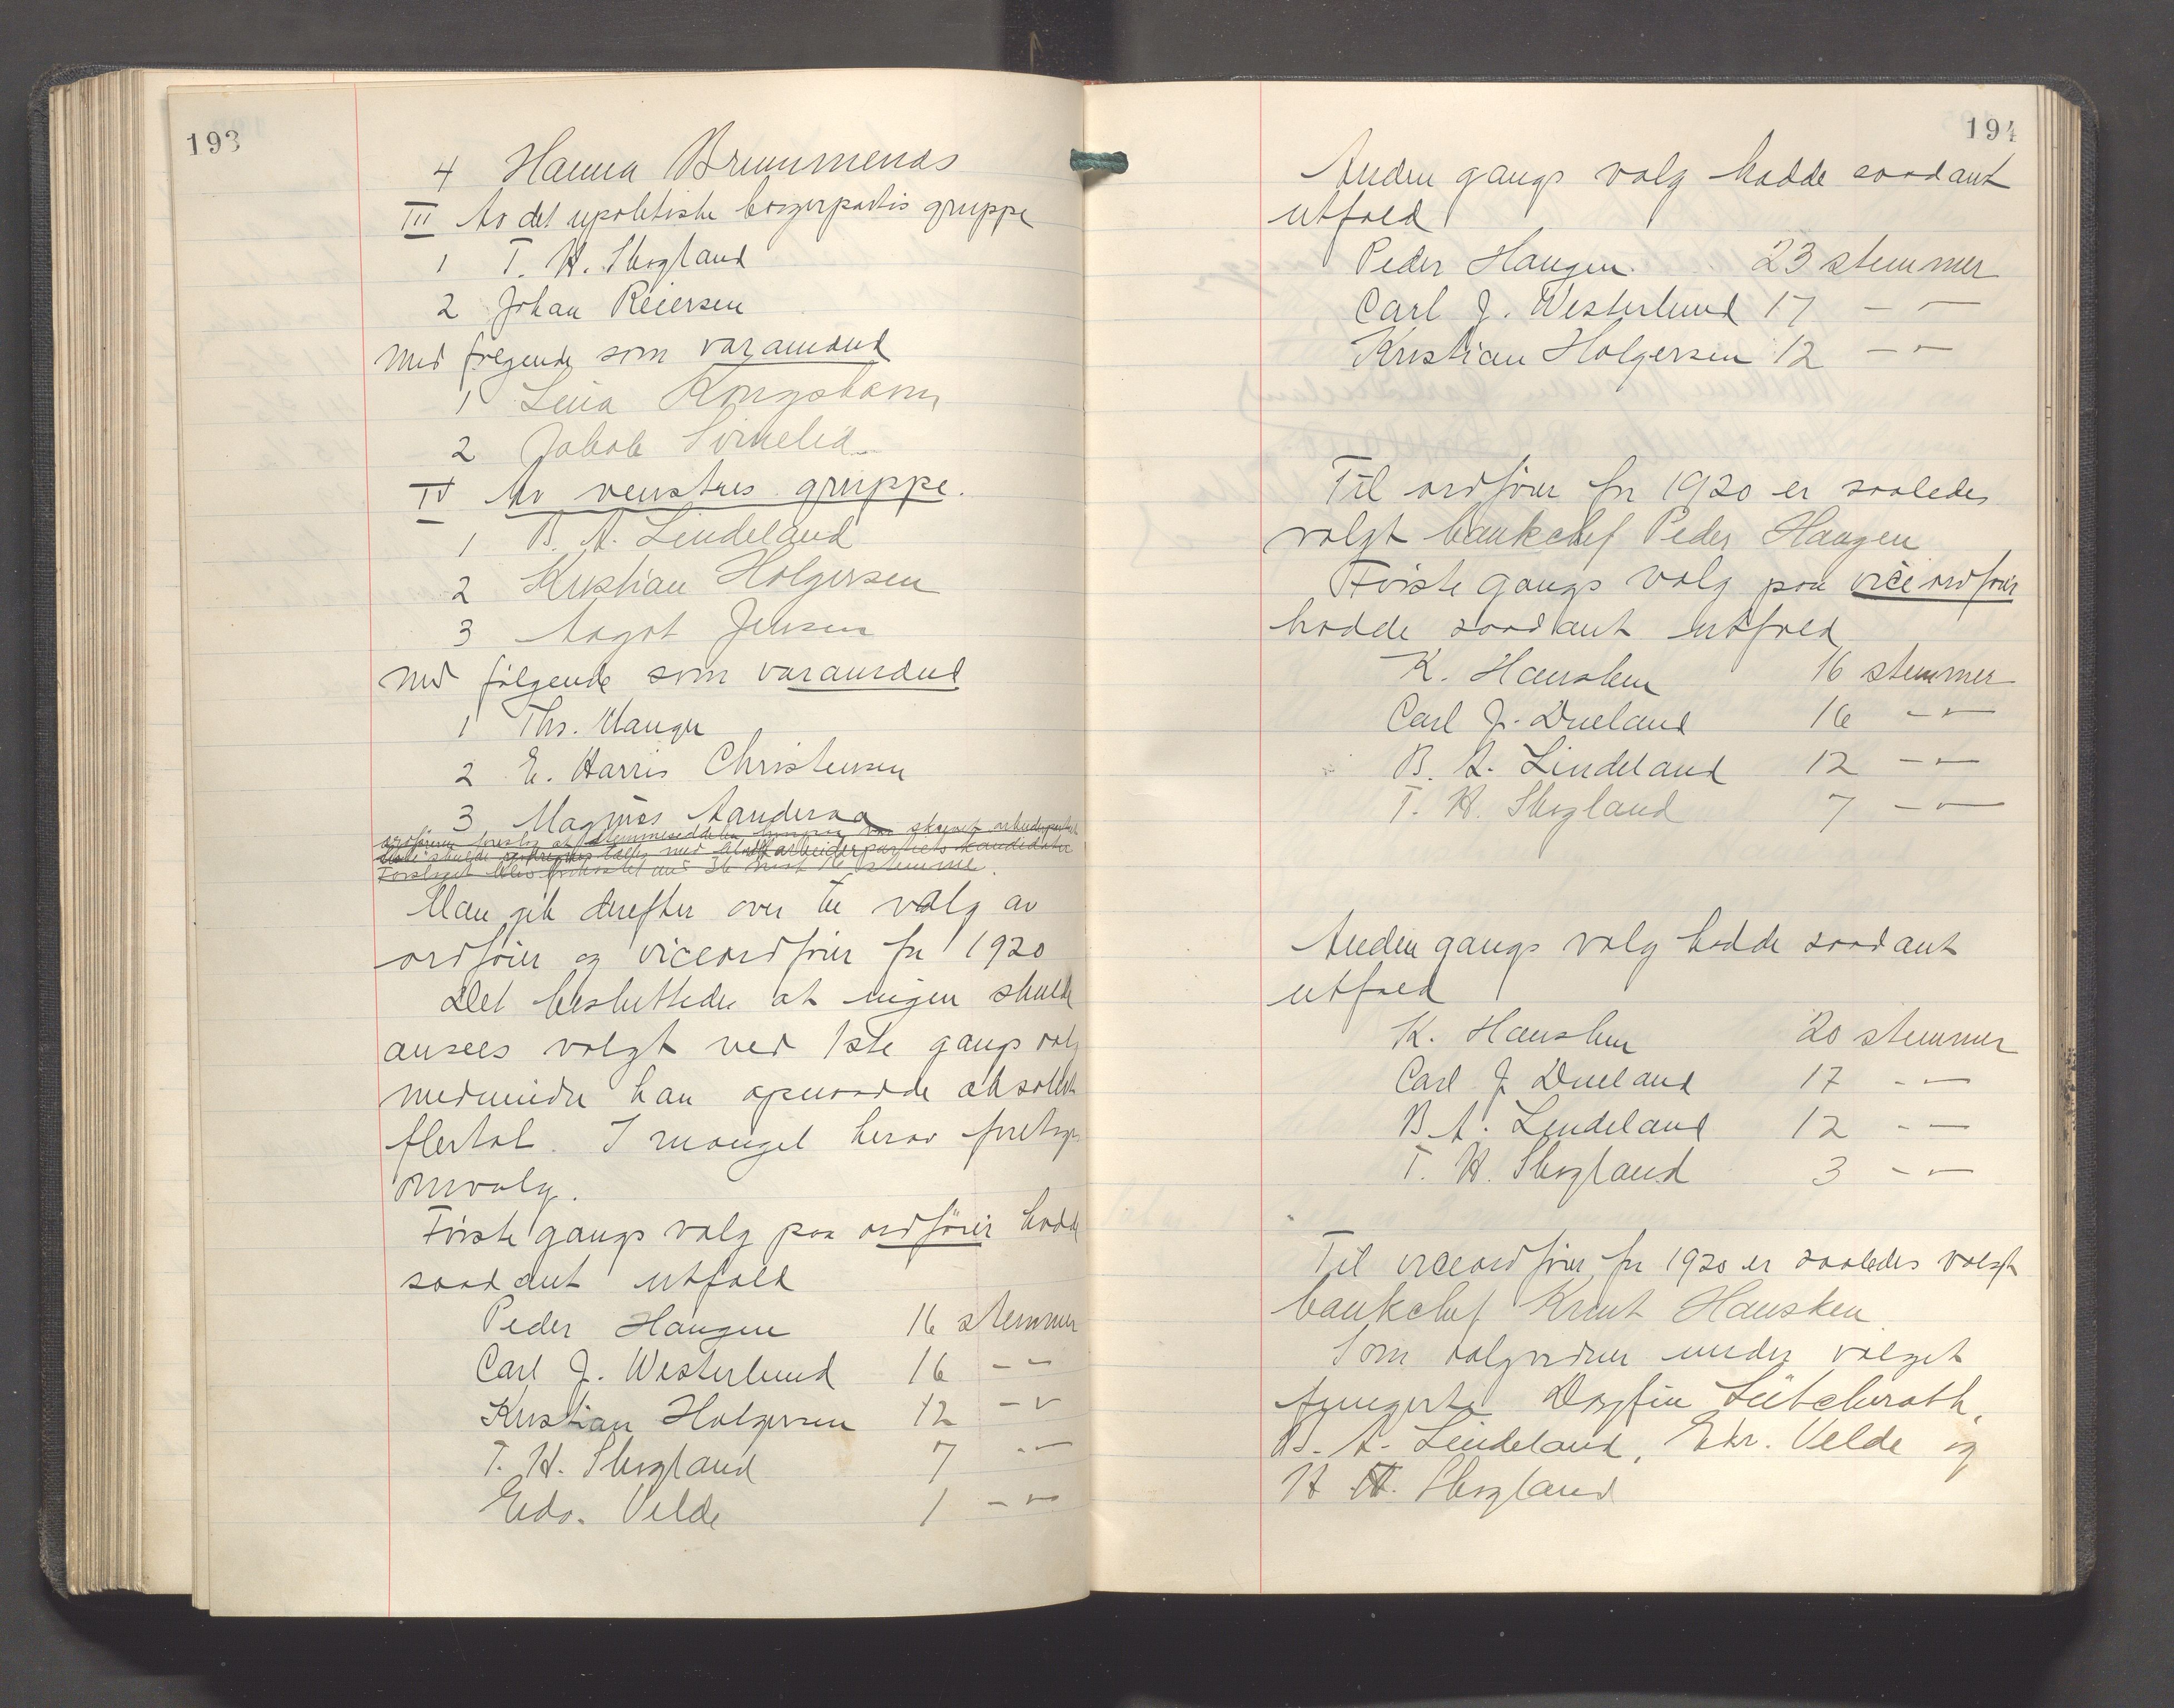 193
4 Hanna Brummenæs
III Av det upolitiske borgerpartis gruppe
1 T. H. Skogland
2 Johan Reiersen
Med følgende som varamænd
1 Lina Kongshavn
2 Jakob
IV Av venstres gruppe.
1 B. A. Lindeland
2 Kristian Holgersen
3 Aagot Jensen
Med følgende som varamænd
1 Ths. Mauger
2 E. Harris Christensen
3 Magnus Aanderaa
Ordføreren foreslog at stemmeseddelen
skulde med arbeiderpartiets kandidater
Forslaget blev forkastet med 36 mot 16 stemmer.
Man gik derefter over til valg av
ordfører og viceordfører for 1920
Det besluttedes at ingen skulde
ansees valgt ved 1ste gangs valg
medmindre han opnaadde absolut
flertal. I mangel herav foretages
omvalg.
Første gangs valg paa ordfører hadde
saadant utfald
Peder Haugen 16 stemmer
Carl J. Westerlund 16 — —
Kristian Holgersen 12 — —
T. H. Skogland 7 — —
Edv. Velde 1 — —
194
Anden gangs valg hadde saadant
utfald
Peder Haugen 23 stemmer
Carl J. Westerlund 17 — —
Kristian Holgersen 12 — —
Til ordfører for 1920 er saaledes
valgt bankchef Peder Haugen
Første gangs valg paa viceordfører
hadde saadant utfald
K. Hausken 16 stemmer
Carl J. Dueland 16 — —
B. A. Lindeland 12 — —
T. H. Skogland 7 — —
Anden gangs valg hadde saadant
utfald
K. Hausken 20 stemmer
Carl J Dueland 17 — —
B. A. Lindeland 12 — —
T. H. Skogland 3 — —
Til viceordfører for 1920 er saaledes valgt
bankchef Knut Hausken
Som valgvidner under valget
fungerte Dagfin Lütcherath,
B. A. Lindeland, Edv. Velde og
H. Skogland